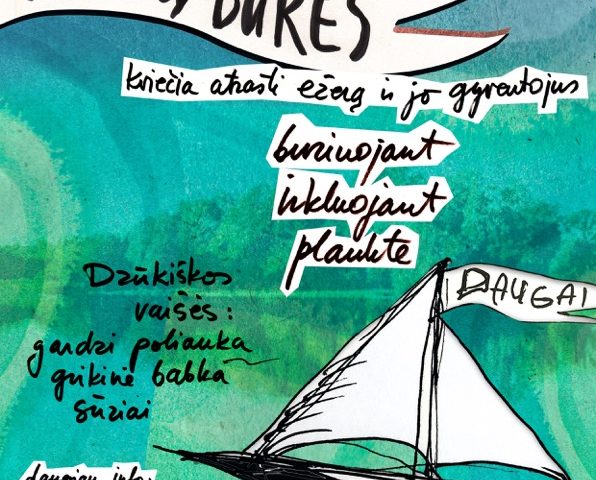 BURĖS
kviečia atrasti ežerą ir jo gyventojus
buriuojant
irkluojant
plaukte
DAUGAI
Dzūkiškos
vaišės:
gardzi poliauka
grikinė babka
sūriai
daugiau info: